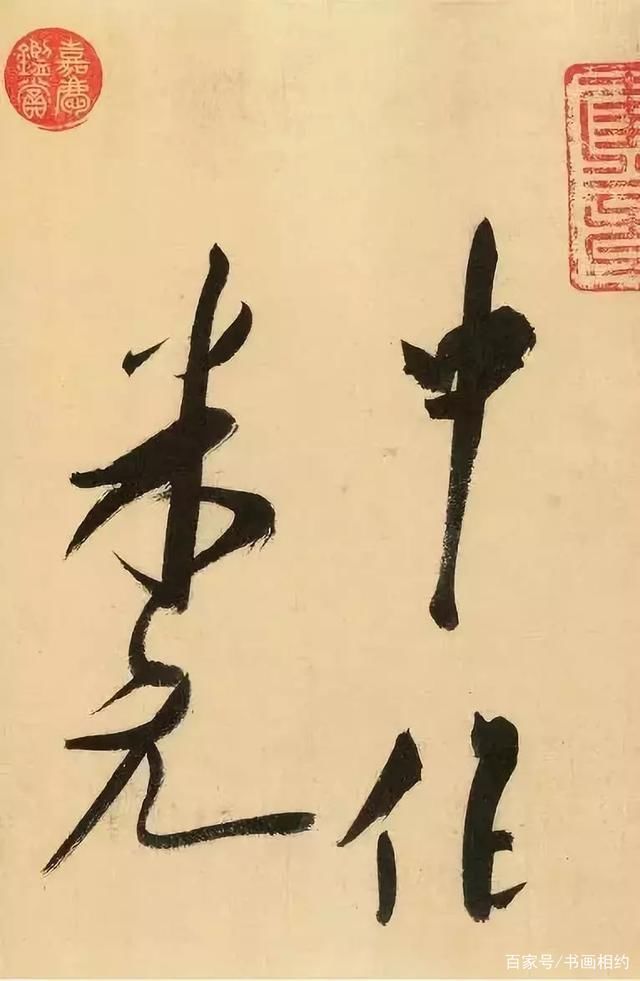 中作
米元
嘉慶
鑑賞
百家号/书画相约